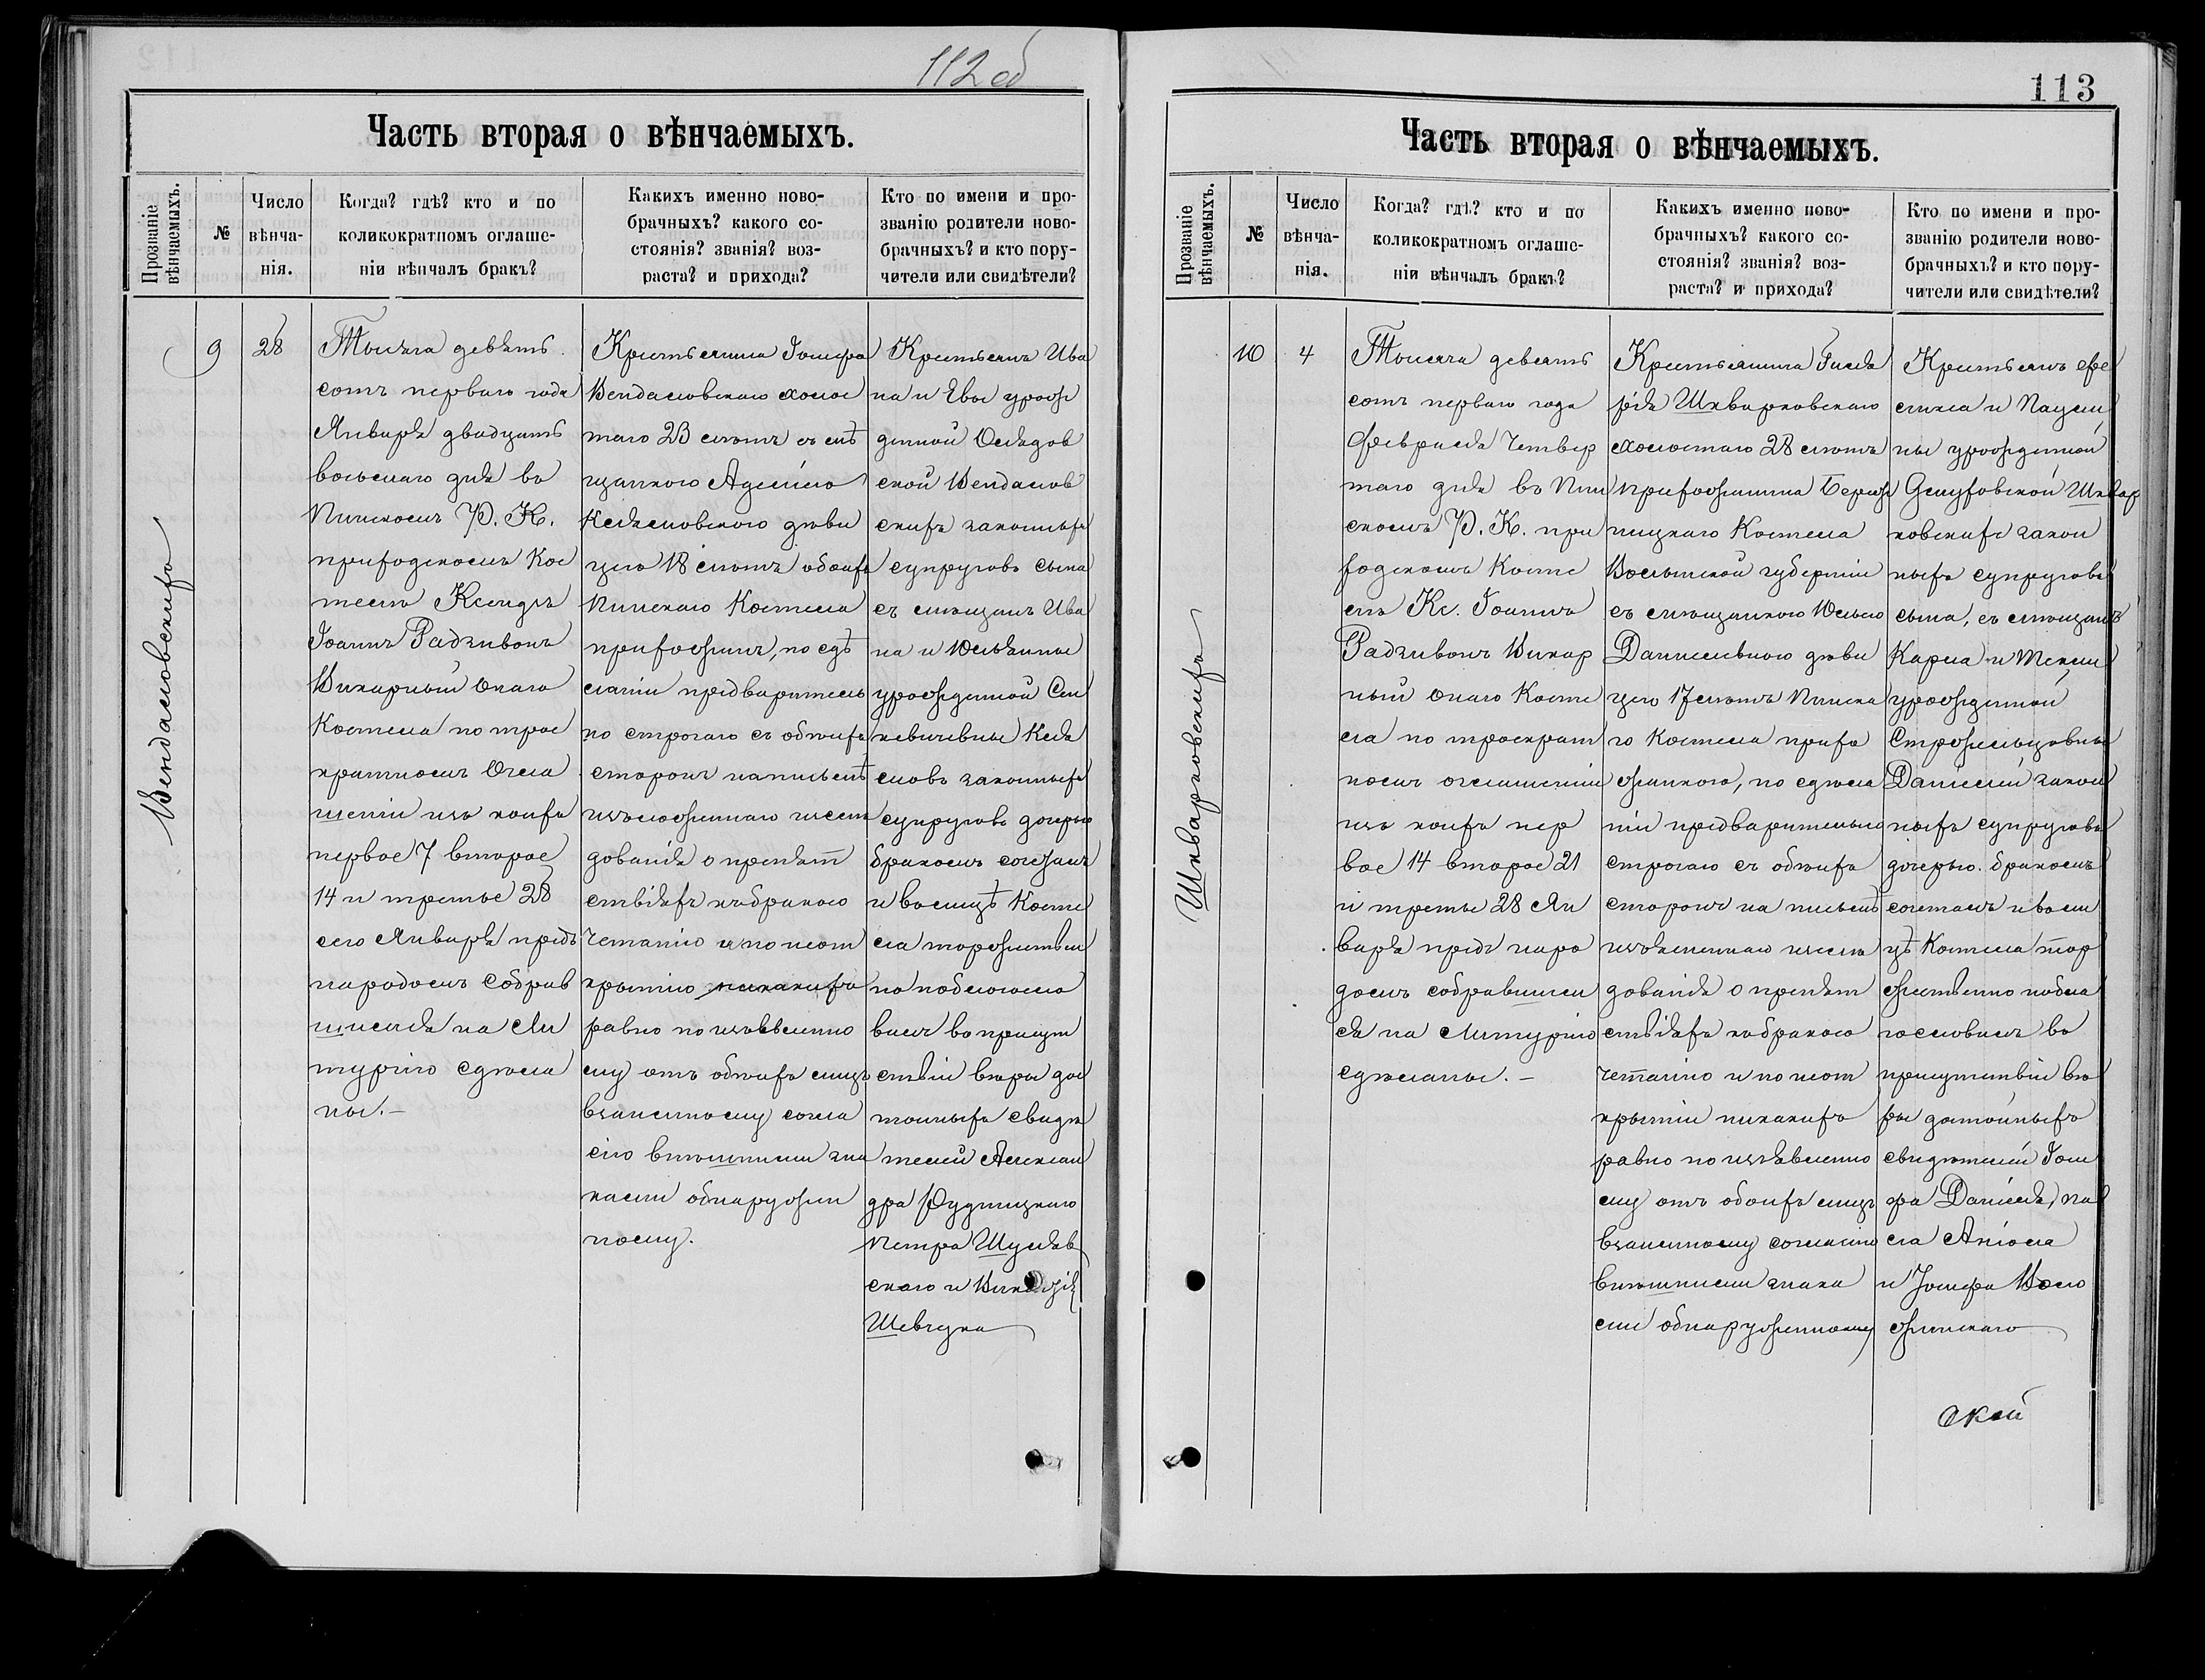 112 об
Часть вторая о вѣнчаемыхъ.
Прозваніе вѣнчаемыхъ.
№
Число вѣнча-
нія.
Когда? гдѣ? кто и по
коликократномъ оглаше-
ніи вѣнчалъ бракъ?
Какихъ именно ново-
брачныхъ? какого со-
стоянія? званія? воз-
раста? и прихода?
Кто по имени и про-
званію родители ново-
брачныхъ? и кто пору-
чители или свидѣтели?
Вендаловскихъ
9
28
Тысяча девять
сотъ перваго года
Января двадцать
восьмаго дня въ
Пинскомъ Р. К.
приходскомъ Кос
телѣ Ксендзъ
Іоаннъ Радзивонъ
Викарный онаго
Костела по трое
кратномъ Огла
шеніи изъ коихъ
первое 7 второе
14 и третье 28
сего Января предъ
народомъ собрав
шимся на Ли
тургію сдѣла
ны.-
Крестьянина Іосифа
Вендаловскаго холос
таго 23 лѣтъ съ мѣ
щанкою Аделію
Келямовскою дѣви
цею 18 лѣтъ обоихъ
Пинскаго Костела
прихожанъ, по сдѣ
ланіи предваритель
но строгаго съ обоихъ
сторонъ на письмѣ
изъложеннаго изслѣ
дованія о препят
ствіяхъ къ брако
четанію и по неот
крытію никакихъ
равно по изъявленно
му отъ обоихъ лицъ
взаимному согла
сію внѣшними зна
ками обнаружен
ному.
Крестьянъ Ива
на и Евы урож
денной
ской Вендалов
скихъ законныхъ
супруговъ сына
съ мѣщанъ Ива
на и Юльянны
урожденной Си
невичевны Келя
мовъ законныхъ
супруговъ дочерью
бракомъ сочеталъ
и въ лицѣ Косте
ла торжествен
но поблагосло
вилъ въ присут
ствіи вѣры дос
тойныхъ свидѣ
телей Алексан
дра Рудницкаго
Петра Шуляв
скаго и
Шевчука
113
Часть вторая о вѣнчаемыхъ.
Прозваніе вѣнчаемыхъ.
№
Число вѣнча-
нія.
Когда? гдѣ? кто и по
коликократномъ оглаше-
ніи вѣнчалъ бракъ?
Какихъ именно ново-
брачныхъ? какого со-
стоянія? званія? воз-
раста? и прихода?
Кто по имени и про-
званію родители ново-
брачныхъ? и кто пору-
чители или свидѣтели?
Шкварковскихъ
10
4
Тысяча девять
сотъ перваго года
Февраля Четвер
таго дня въ Пин
скомъ Р. К. при
ходскомъ Косте
лѣ Кс. Іоаннъ
Радзивонъ Викар
ный онаго Косте
ла по троекрат
номъ оглашеніи
изъ коихъ пер
вое 14 второе 21
и третье 28 Ян
варя предъ наро
домъ собравшим
ся на Литургію
сдѣланы.-
Крестьянина
Шкварковскаго
холостаго 28 лѣтъ
прихожанина Береж
ницкаго Костела
Волынской губерніи
съ мѣщанкою Юлею
Данилевною дѣви
цею 17 лѣтъ Пинска
го Костела прихо
жанкою, по сдѣла
ніи предварительно
строгаго съ обоихъ
сторонъ на письмѣ
изъясненнаго изслѣ
дованія о препят
ствіяхъ къ брако
четанію и по неот
крытіи никакихъ
равно по изъявленно
му отъ обоихъ лицъ
взаимному согласію
внѣшними знака
ми обнаруженному
Крестьянъ Фе
ликса и Паули
ны урожденной
Шквар
ковскихъ закон
ныхъ супруговъ
сына, съ мѣщанъ
Карла и Теклі
урожденной
Данилей закон
ныхъ супруговъ
дочерью. бракомъ
сочеталъ и въ ли
цѣ Костела тор
жественно побла
гословилъ въ
присутствіи вѣ
ры достойныхъ
свидѣтелей Іоси
фа Даниеля, Пав
ла
и Іосифа Воло
жинскаго
ской